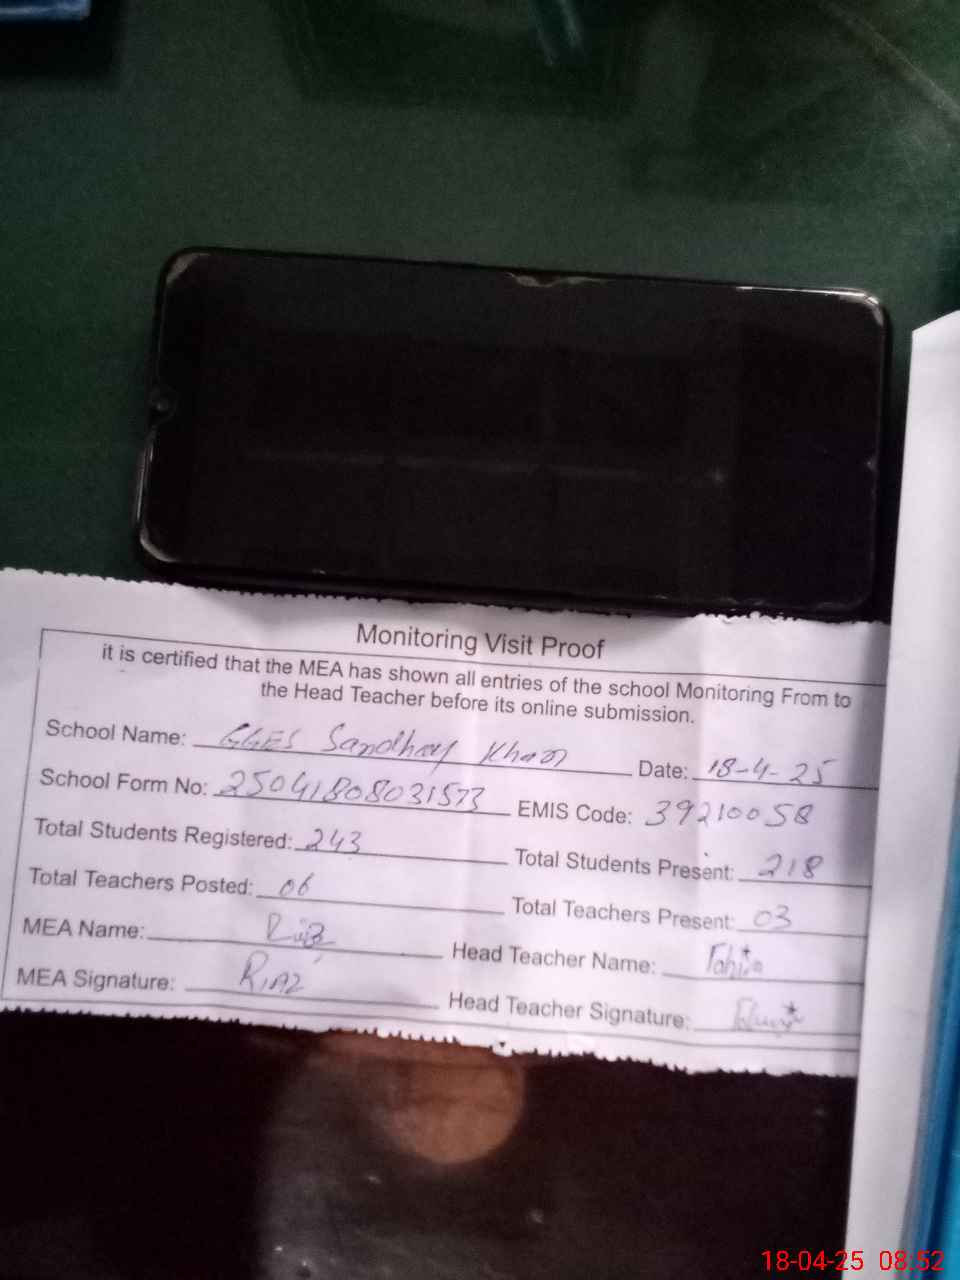 Monitoring Visit Proof
it is certified that the MEA has shown all entries of the school Monitoring From to
the Head Teacher before its online submission.
School Name: GGES Sandhay Khan Date: 18-4-25
School Form No: 25041808031573 EMIS Code: 39210058
Total Students Registered: 243 Total Students Present: 218
Total Teachers Posted: 06 Total Teachers Present: 03
MEA Name: Head Teacher Name:
MEA Signature: Riaz Head Teacher Signature:
18-04-25 08:52